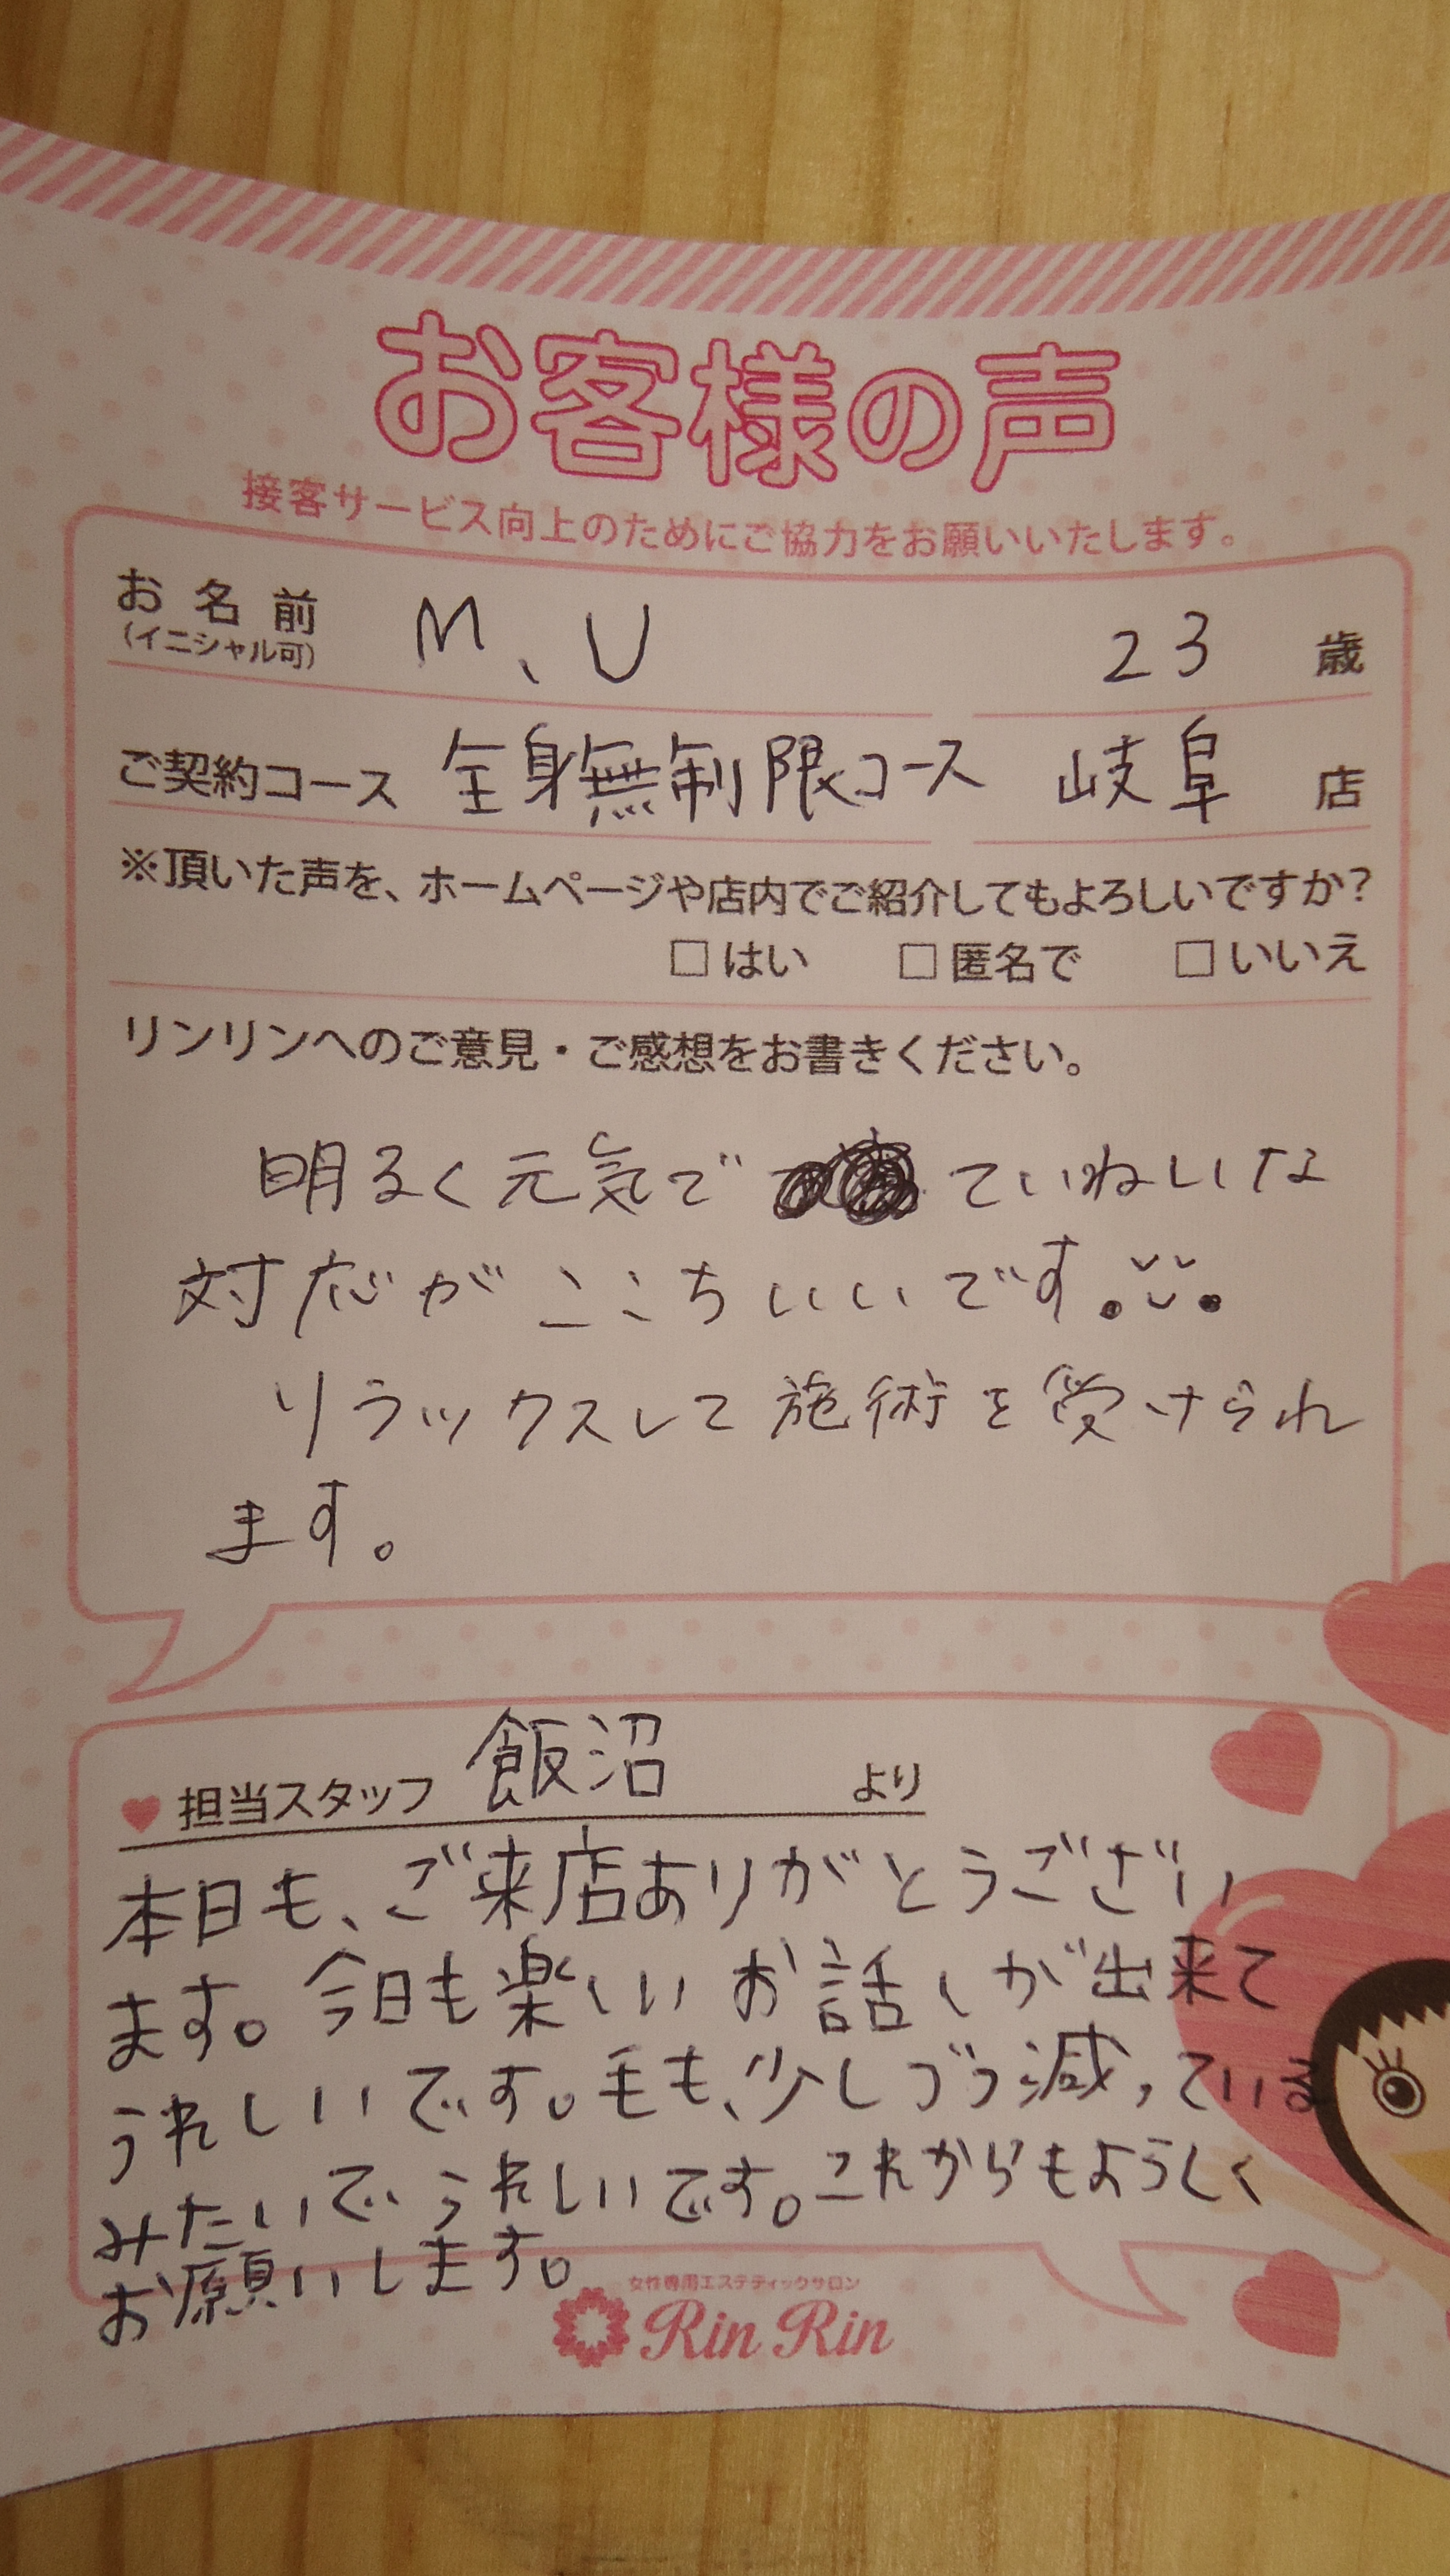 お客様の声
接客サービス向上のためにご協力をお願いいたします。
お名前 M、U 23 歳
(イニシャル可)
ご契約コース 全身無制限コース 岐阜 店
※頂いた声を、ホームページや店内でご紹介してもよろしいですか？
□はい □匿名で □いいえ
リンリンへのご意見・ご感想をお書きください。
明るく元気で ていねいな
対応がここちいいです。
リラックスして施術を受けられ
ます。
♥担当スタッフ 飯沼 より
本日も、ご来店ありがとうござい
ます。今日も楽しいお話しが出来て
うれしいです。毛も、少しづつ減っている
みたいでうれしいです。これからもよろしく
お願いします。
女性専用エステティックサロン
Rin Rin